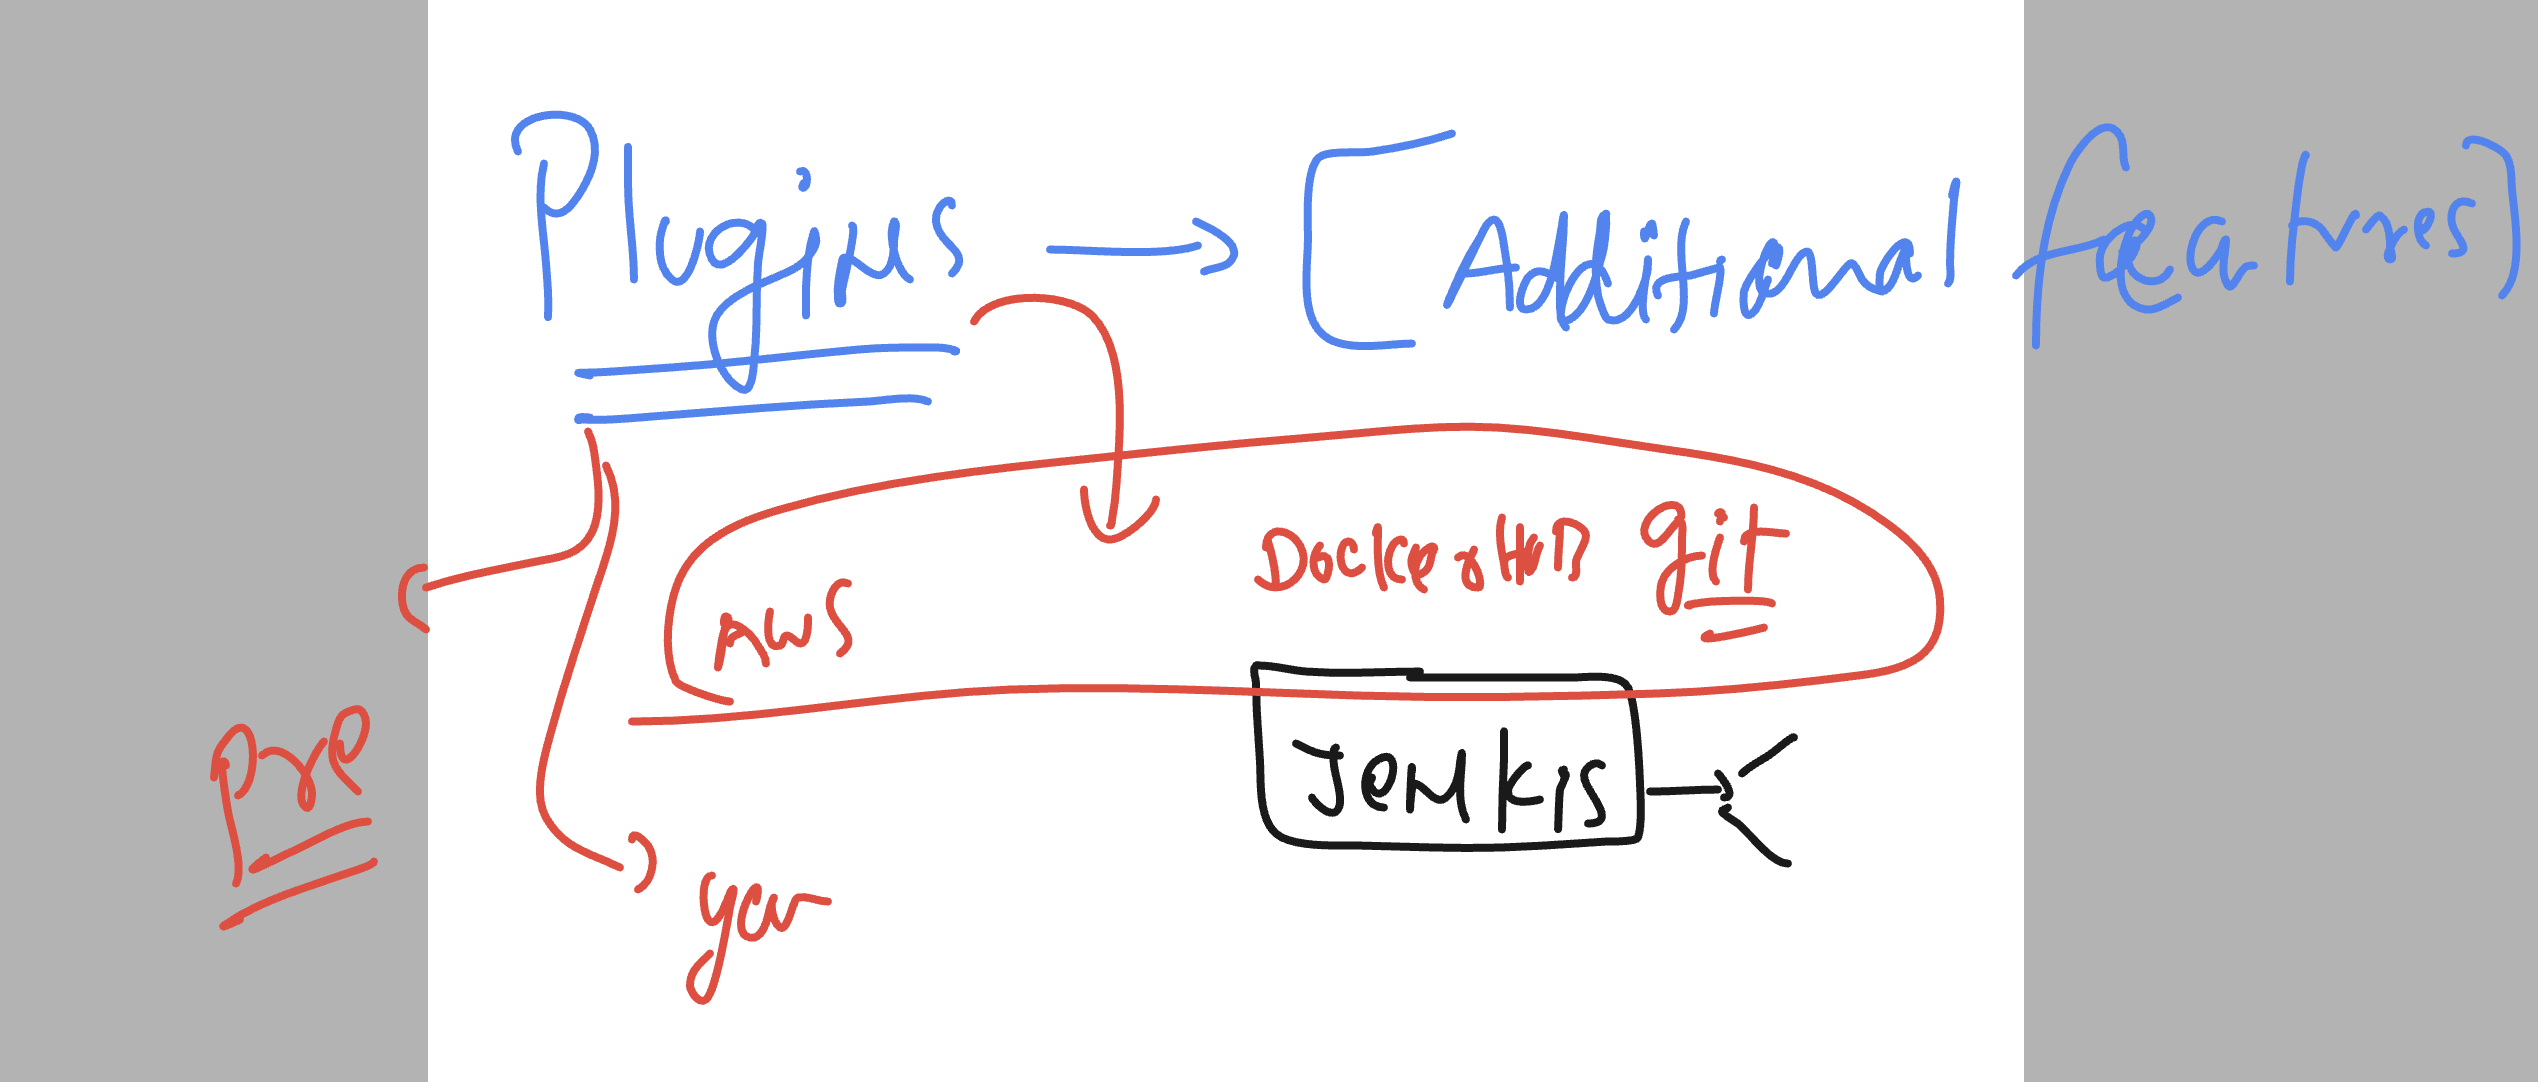 Plugins → [Additional features]
DockerHub git
AWS
Pre
Jenkis
you